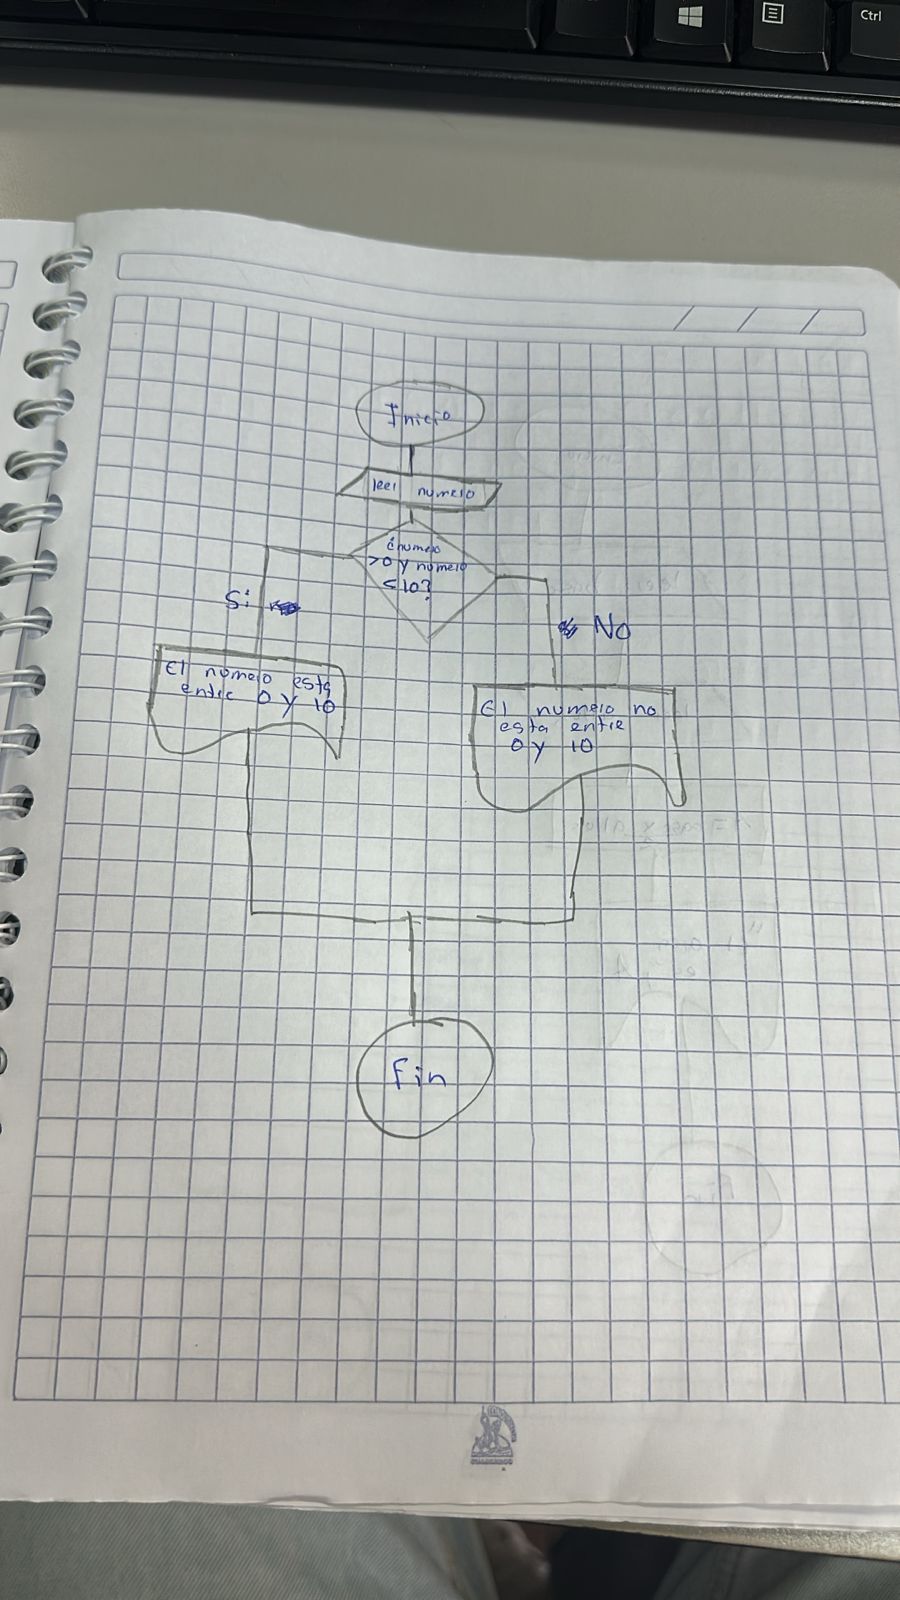 Ctrl
Inicio
leer numero
¿numero
>0 y numero
<10?
Si
No
El numero esta
entre 0 y 10
El numero no
esta entre
0 y 10
Fin